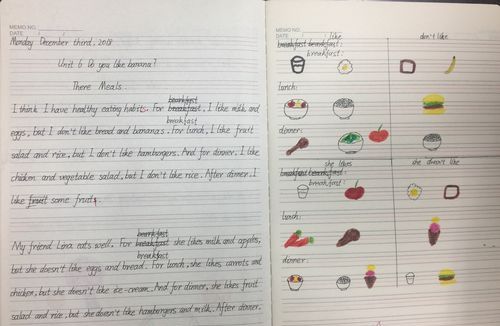 MEMO NO.
DATE / /
Monday December third, 2018
Unit 6 Do you like banana?
There Meals:
breankfast
I think I have healthy eating habits. For breankfast, I like milk and
breakfast
eggs, but I don't like bread and bananas. For lunch, I like fruit
salad and rice, but I don't like hamburgers. And for dinner, I like
chicken and vegetable salad, but I don't like rice. After dinner, I
like fruit some fruits.
My friend Lina eats well. For breakfast she likes milk and apples,
breakfast
but she doesn't like eggs and bread. For lunch, she likes carrots and
chicken, but she doesn't like ice-cream. And for dinner, she likes fruit
salad and rice, but she doesn't like hamburgers and milk. After dinner,
MEMO NO.
DATE / /
I like
don't like
breakfast:
lunch:
dinner:
she likes
she doesn't like
breakfast:
lunch:
dinner: